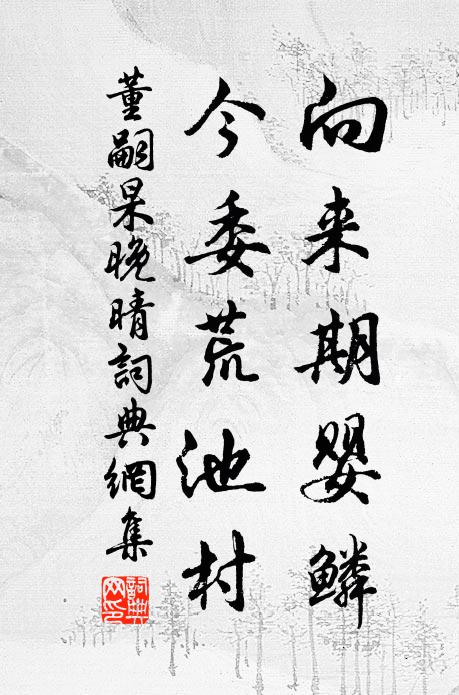 向来期婴鳞
今委荒池村
董嗣杲晚晴詞典網集
詞典
网印